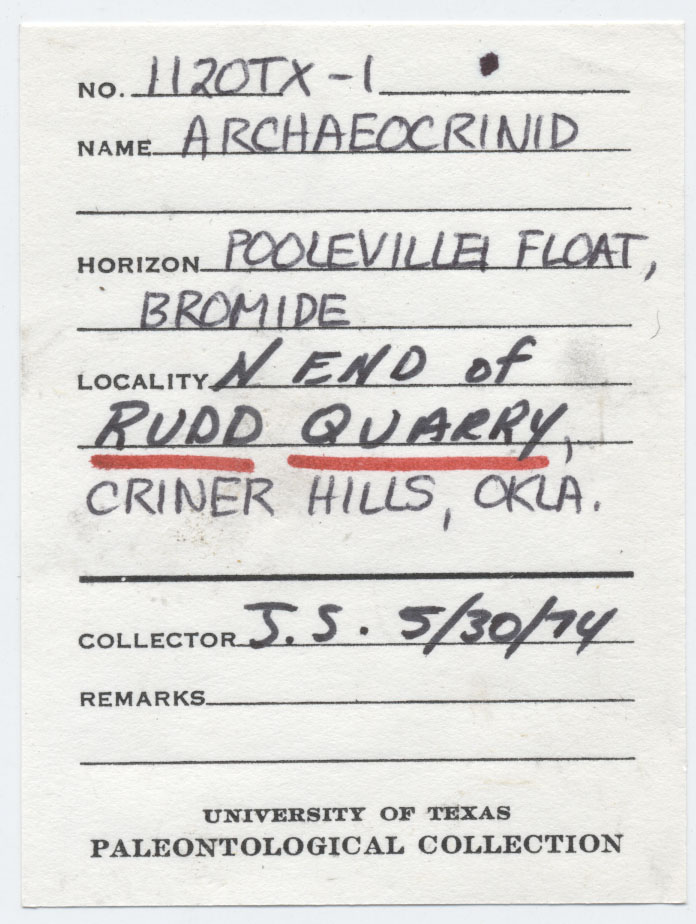 NO. 1120TX-1
NAME ARCHAEOCRINID
HORIZON POOLEVILLE FLOAT,
BROMIDE
LOCALITY N END of
RUDD QUARRY,
CRINER HILLS, OKLA.
COLLECTOR J.S. 5/30/74
REMARKS
UNIVERSITY OF TEXAS
PALEONTOLOGICAL COLLECTION